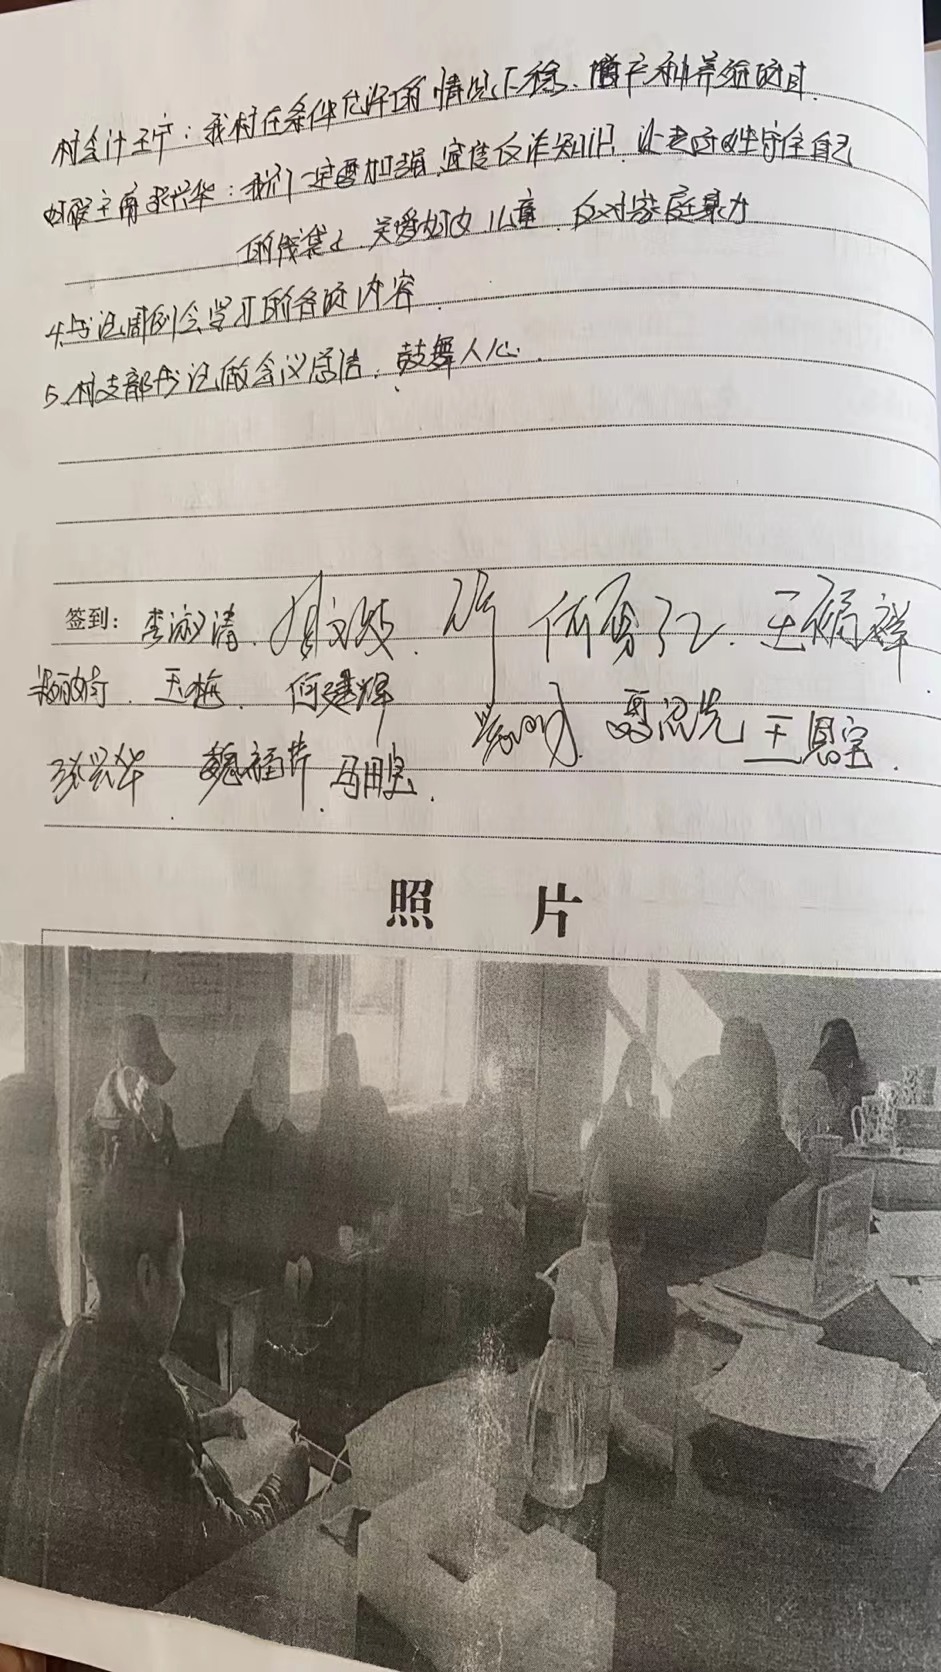 村会计王宁：我村在条件允许的情况下 种养殖项目.
妇联主席张兴华：我们一定要加强宣传反诈知识，让老百姓守住自己
的钱袋子，关爱妇女儿童，反对家庭暴力
4、书记周例会学习的各项内容
5、村支部书记做会议总结，鼓舞人心.
签到：李淑清. 王福祥
王梅. 何建辉
王恩宝.
张兴华 魏福芹 马田宝.
照 片